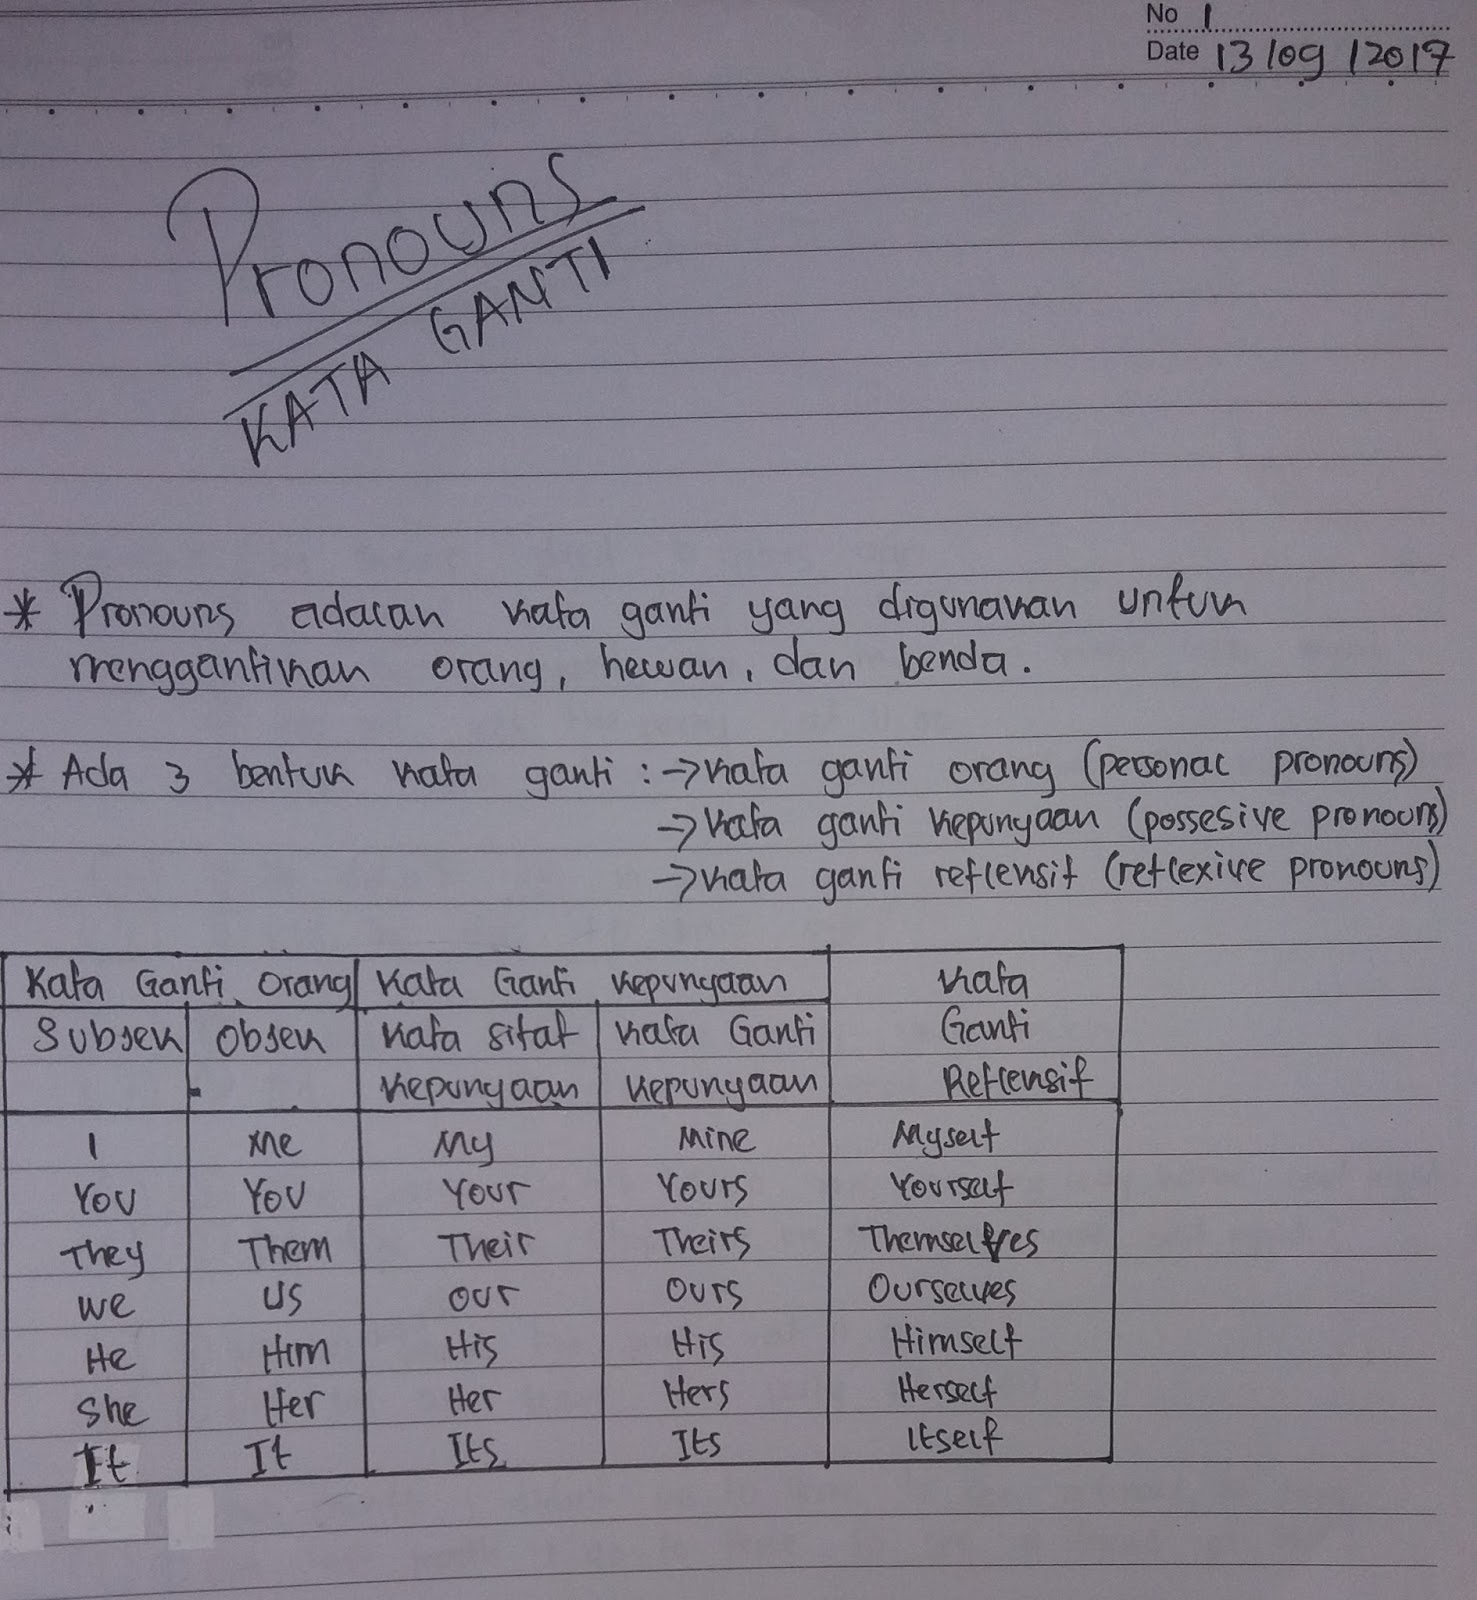 No 1
Date 13/09/2017
Pronouns
KATA GANTI
* Pronouns adalah kata ganti yang digunakan untuk
menggantikan orang, hewan, dan benda.
* Ada 3 bentuk kata ganti : → kata ganti orang (personal pronouns)
→ kata ganti kepunyaan (possesive pronouns)
→ kata ganti refleksif (reflexive pronouns)
Kata Ganti Orang Kata Ganti Kepunyaan Kata
Subjek Objek Kata Sifat Kata Ganti Ganti
Kepunyaan Kepunyaan Refleksif
I Me My Mine Myself
You You Your Yours Yourself
They Them Their Theirs Themselves
We Us Our Ours Ourselves
He Him His His Himself
She Her Her Hers Herself
It It Its Its Itself